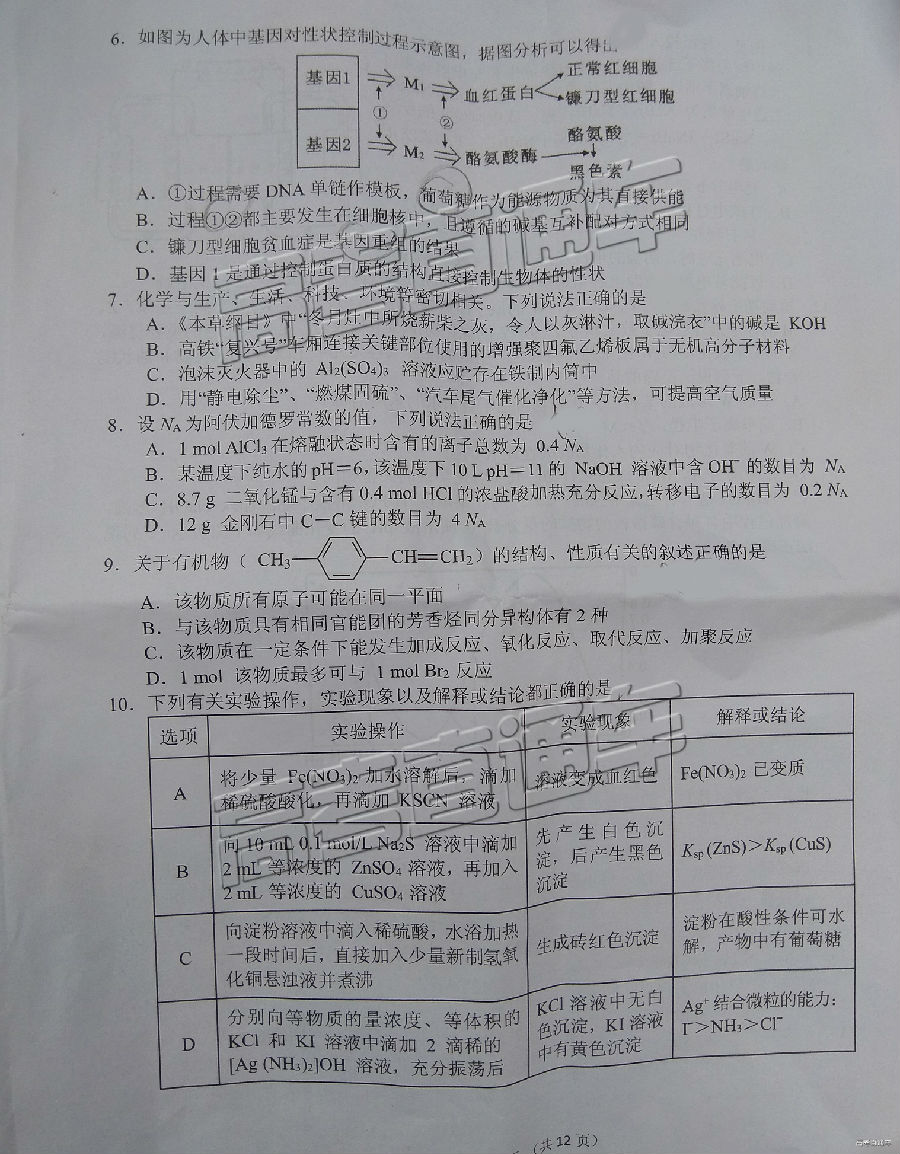 6．如图为人体中基因对性状控制过程示意图，据图分析可以得出
基因1 M₁ 血红蛋白 正常红细胞
镰刀型红细胞
① ②
基因2 M₂ 酪氨酸酶 酪氨酸
黑色素
A．①过程需要 DNA 单链作模板，葡萄糖作为能源物质为其直接供能
B．过程①②都主要发生在细胞核中，且遵循的碱基互补配对方式相同
C．镰刀型细胞贫血症是基因重组的结果
D．基因 1 是通过控制蛋白质的结构直接控制生物体的性状
7．化学与生产、生活、科技、环境等密切相关。下列说法正确的是
A．《本草纲目》中“冬月灶中所烧薪柴之灰，令人以灰淋汁，取碱浣衣”中的碱是 KOH
B．高铁“复兴号”车厢连接关键部位使用的增强聚四氟乙烯板属于无机高分子材料
C．泡沫灭火器中的 Al₂(SO₄)₃ 溶液应贮存在铁制内筒中
D．用“静电除尘”、“燃煤固硫”、“汽车尾气催化净化”等方法，可提高空气质量
8．设 NA 为阿伏加德罗常数的值，下列说法正确的是
A．1 mol AlCl₃ 在熔融状态时含有的离子总数为 0.4 NA
B．某温度下纯水的 pH＝6，该温度下 10 L pH＝11 的 NaOH 溶液中含 OH⁻ 的数目为 NA
C．8.7 g 二氧化锰与含有 0.4 mol HCl 的浓盐酸加热充分反应，转移电子的数目为 0.2 NA
D．12 g 金刚石中 C－C 键的数目为 4 NA
9．关于有机物（ CH₃ CH＝CH₂）的结构、性质有关的叙述正确的是
A．该物质所有原子可能在同一平面
B．与该物质具有相同官能团的芳香烃同分异构体有 2 种
C．该物质在一定条件下能发生加成反应、氧化反应、取代反应、加聚反应
D．1 mol 该物质最多可与 1 mol Br₂ 反应
10．下列有关实验操作，实验现象以及解释或结论都正确的是
选项 实验操作 实验现象 解释或结论
A 将少量 Fe(NO₃)₂ 加水溶解后，滴加 溶液变成血红色 Fe(NO₃)₂ 已变质
稀硫酸酸化，再滴加 KSCN 溶液
向 10 mL 0.1 mol/L Na₂S 溶液中滴加 先产生白色沉
B 2 mL 等浓度的 ZnSO₄ 溶液，再加入 淀，后产生黑色 Ksp (ZnS)＞Ksp (CuS)
2 mL 等浓度的 CuSO₄ 溶液 沉淀
向淀粉溶液中滴入稀硫酸，水浴加热 淀粉在酸性条件可水
C 一段时间后，直接加入少量新制氢氧 生成砖红色沉淀 解，产物中有葡萄糖
化铜悬浊液并煮沸
分别向等物质的量浓度、等体积的 KCl 溶液中无白 Ag⁺ 结合微粒的能力：
D KCl 和 KI 溶液中滴加 2 滴稀的 色沉淀，KI 溶液 I⁻＞NH₃＞Cl⁻
[Ag (NH₃)₂]OH 溶液，充分振荡后 中有黄色沉淀
（共 12 页）
高考直通车
高考直通车
高考直通车